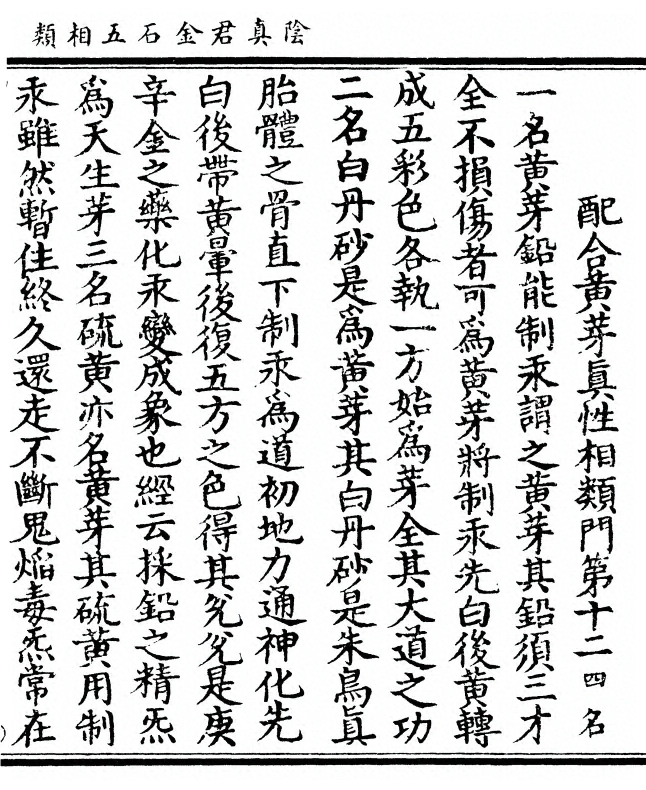 陰真君金石五相類
配合黃芽真性相類門第十二四名
一名黃芽鉛能制汞謂之黃芽其鉛須三才
全不損傷者可為黃芽將制汞先白後黃轉
成五彩色各執一方始為芽全其大道之功
二名白丹砂是為黃芽其白丹砂是朱鳥真
胎體之骨直下制汞為道初地力通神化先
白後帶黃暈後復五方之色得其兊兊是庚
辛金之藥化汞變成象也經云採鉛之精炁
為天生芽三名硫黃亦名黃芽其硫黃用制
汞雖然暫住終久還走不斷鬼焰毒炁常在